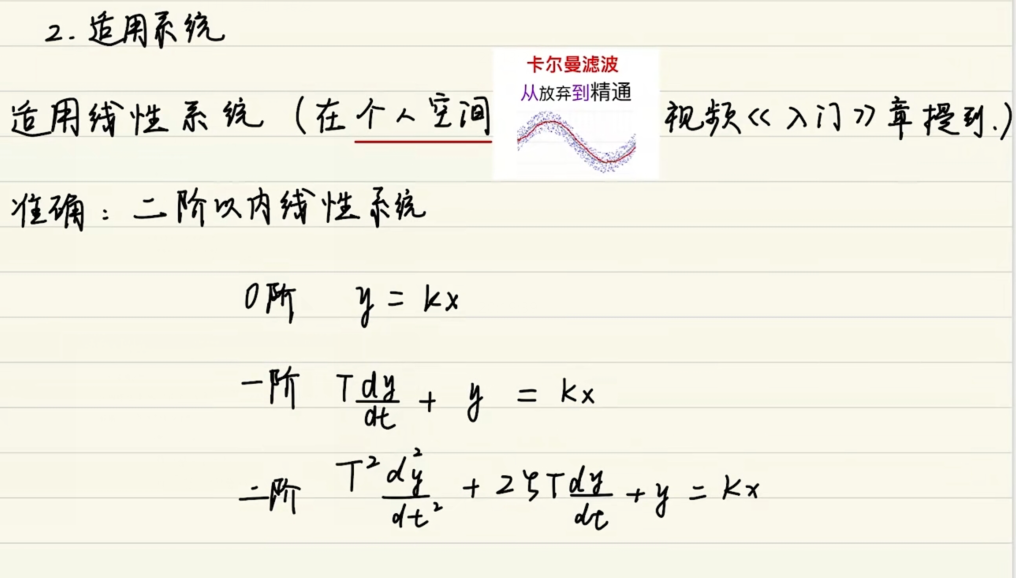 2. 适用系统
适用线性系统 (在个人空间 卡尔曼滤波 从放弃到精通 视频《入门》章提到.)
准确: 二阶以内线性系统
0阶 y = kx
一阶 T dy/dt + y = kx
二阶 T² d²y/dt² + 2ζT dy/dt + y = kx